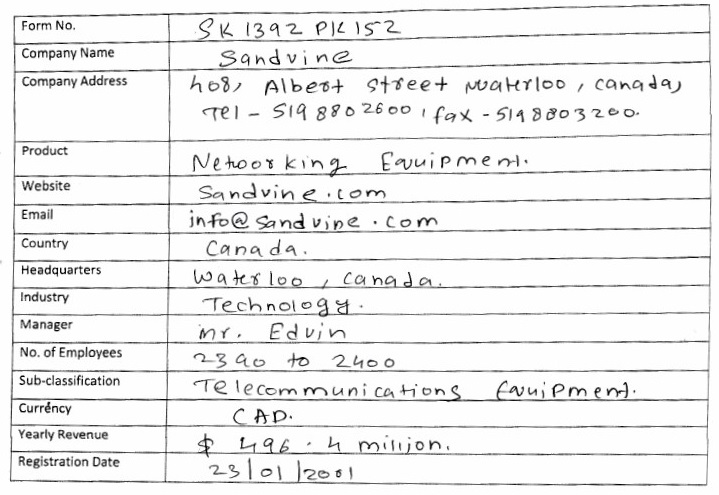 Form No. SK1392PK152
Company Name Sandvine
Company Address 408, Albert Street Waterloo, Canada,
Tel - 519 880 2600, fax - 519 880 3200.
Product Networking Equipment.
Website Sandvine.com
Email info@sandvine.com
Country Canada.
Headquarters Waterloo, Canada.
Industry Technology.
Manager Mr. Edvin
No. of Employees 2390 to 2400
Sub-classification Telecommunications Equipment.
Currency CAD.
Yearly Revenue $ 496.4 million.
Registration Date 23/01/2001